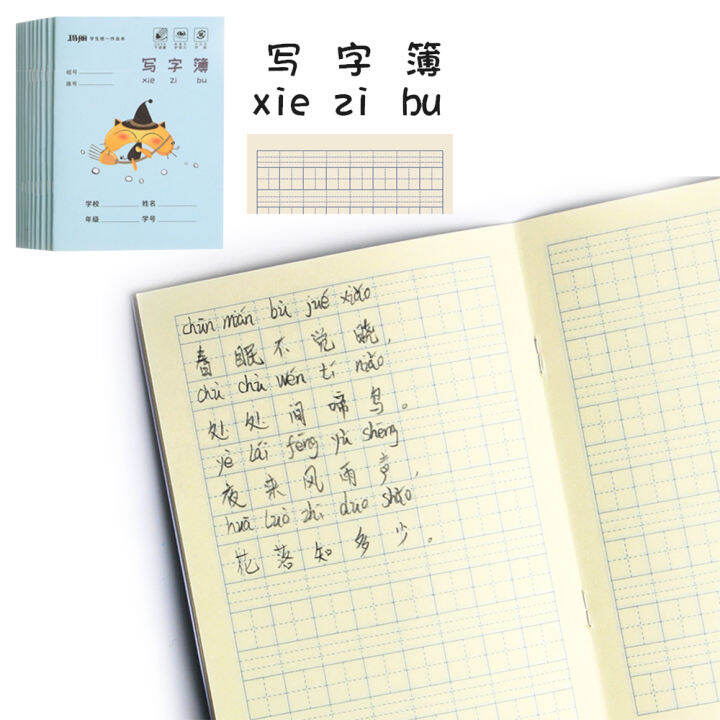 玛丽 学生统一作业本
写 字 簿
xie zi bu
学校 姓名
年级 学号
写 字 簿
xie zi bu
chūn mián bù jué xiǎo
春眠不说晓,
chù chù wén tí niǎo
处处间啼鸟。
yè lái fēng yǔ shēng
夜来风雨声,
huā luò zhī duō shǎo
花落知多少。